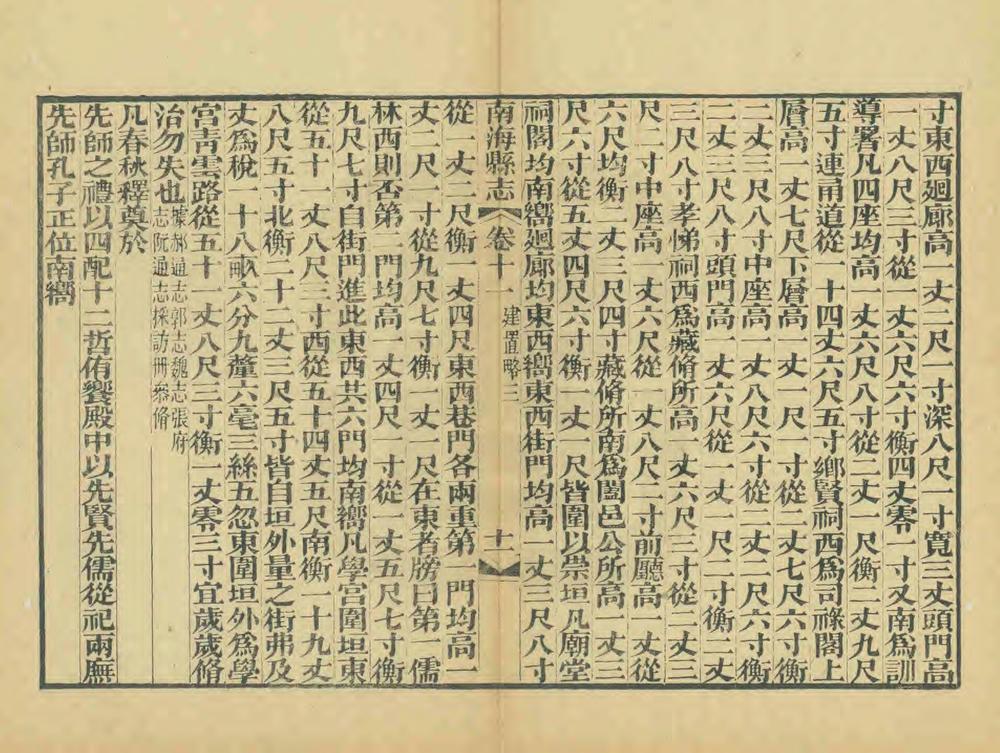 寸東西廻廊高一丈二尺一寸深八尺一寸寬三丈頭門高
一丈八尺三寸從一丈六尺六寸衡四丈零一寸又南爲訓
導署凡四座均高一丈六尺八寸從二丈一尺衡二丈九尺
五寸連甬道從一十四丈六尺五寸鄉賢祠西爲司祿閣上
層高一丈七尺下層高一丈一尺一寸從二丈七尺六寸衡
二丈三尺八寸中座高一丈八尺六寸從二丈二尺六寸衡
二丈三尺八寸頭門高一丈六尺從一丈一尺二寸衡二丈
三尺八寸孝悌祠西爲藏脩所高一丈六尺三寸從二丈三
尺二寸中座高一丈六尺從一丈八尺二寸前廳高一丈從
六尺均衡二丈三尺四寸藏脩所南爲闔邑公所高一丈三
尺六寸從五丈四尺六寸衡一丈一尺皆圍以崇垣凡廟堂
祠閣均南嚮廻廊均東西嚮東西街門均高一丈三尺八寸
南海縣志 卷十一 建置略三 十一
從一丈二尺衡一丈四尺東西巷門各兩重第一門均高一
丈二尺一寸從九尺七寸衡一丈一尺在東者牓曰第一儒
林西則否第二門均高一丈四尺一寸從一丈五尺七寸衡
九尺七寸自街門進此東西共六門均南嚮凡學宮圍垣東
從五十一丈八尺三寸西從五十四丈五尺南衡一十九丈
八尺五寸北衡二十二丈三尺五寸皆自垣外量之街弗及
丈爲稅一十八畝六分九釐六毫三絲五忽東圍垣外爲學
宮靑雲路從五十一丈八尺三寸衡一丈零三寸宜歲歲脩
治勿失也據郝通志郭志魏志張府
志阮通志採訪冊叅脩
凡春秋釋奠於
先師之禮以四配十二哲侑饗殿中以先賢先儒從祀兩廡
先師孔子正位南嚮